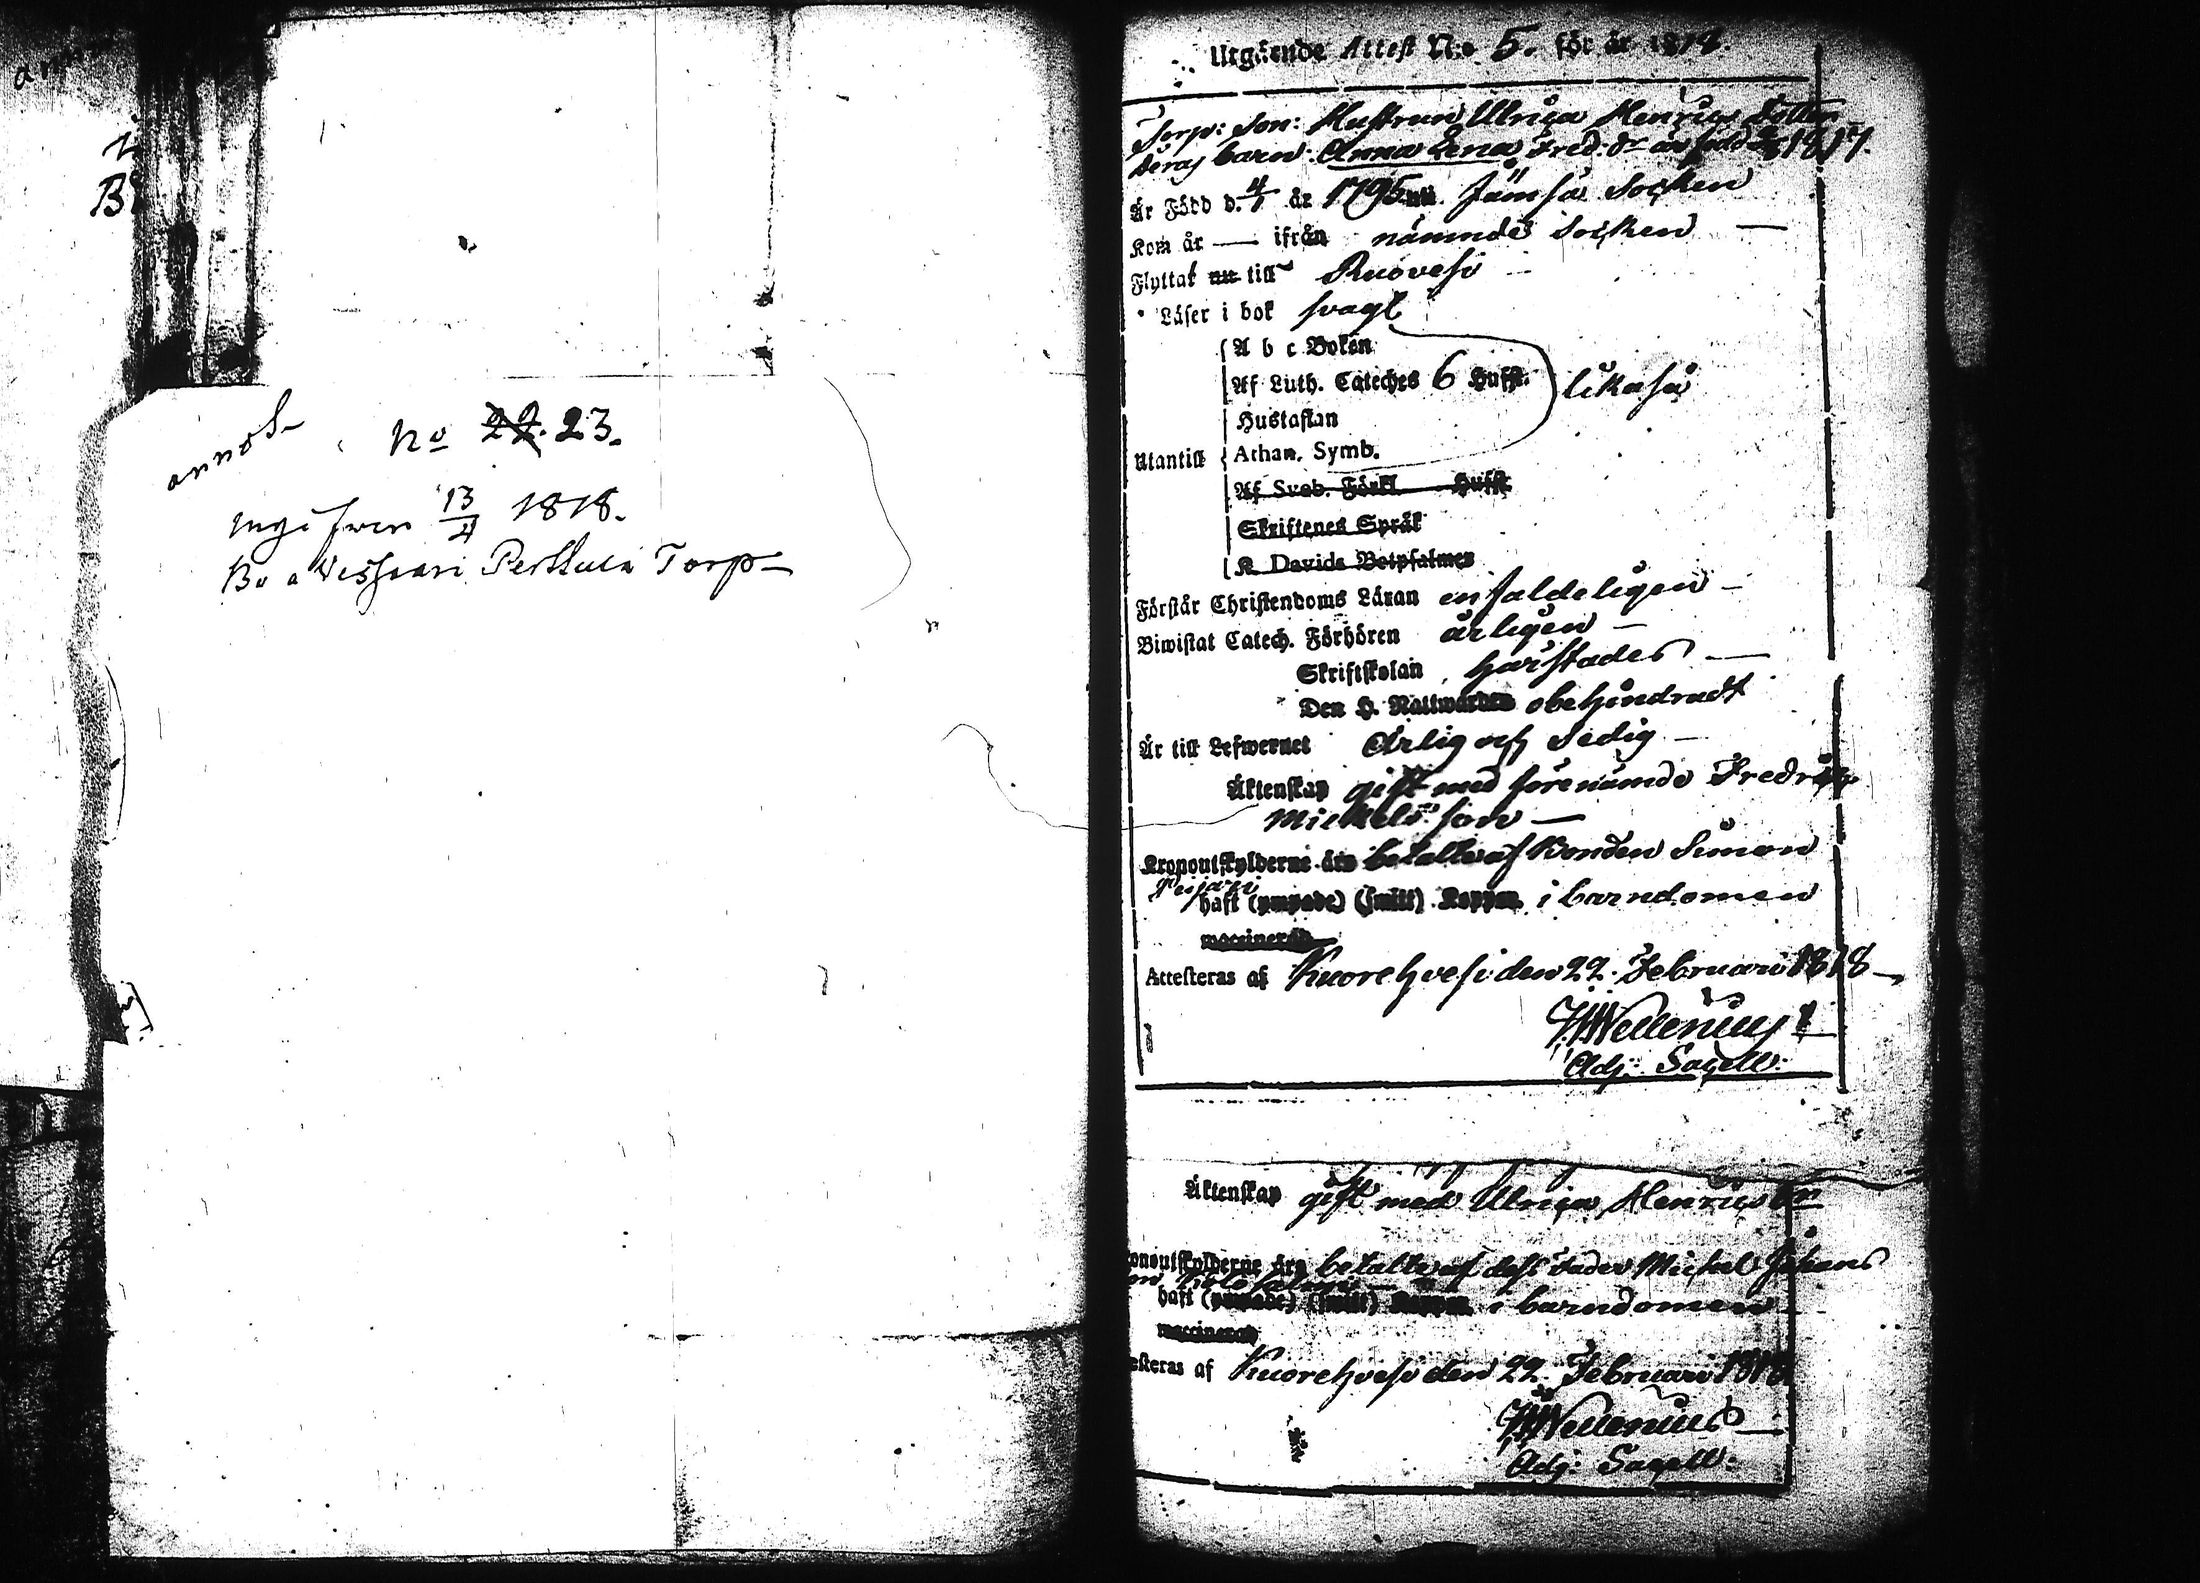 annot
No 22. 23.
ingifven 13/4 1818.
Bo a Torp
Utgående Attest N:o 5. för år 1818.
Torp: Son: Hustrun Ulrica Henrics Dotter
deras barn: Anna Lena Fred: dr är född 1817.
Är Född d. 4/1 år 1795 uti Jämsä Socken
Kom år — ifrån nämnde Socken —
Flyttat nu till Ruovesi
Läser i bok svagt
A b c Boken
Af Luth. Cateches 6 Hufst. likaså
Hustaflan
Utantill Athan. Symb.
Af Sveb. Förkl. Hufst.
Skriftenes Språk
K Davids Botpsalmer
Förstår Christendoms Läran enfaldeligen —
Biwistat Catech. Förhören årligen —
Skriftskolan harstades —
Den H. Nattwarden obehindradt
Är till Lefwernet Ärlig och Sedig —
Äktenskap gift med förenämde Fredric
Mickels son —
Kronoutskylderne äro betalte af Bonden Simon
haft (ympade) (smitt) Koppor i barndomen
waccinerad
Attesteras af Kuorehvesi den 22. Februari 1818 —
Wellenius
Adj: Sacell:
Äktenskap gift med Ulrica Henrics dr
onoutskylderne äro betalte af dess fader Michel Johans
haft (ympade) (smitt) Koppor i barndomen —
waccinerad
esteras af Kuorehvesi den 22. Februari 1818
Wellenius —
Adj: Sacell: